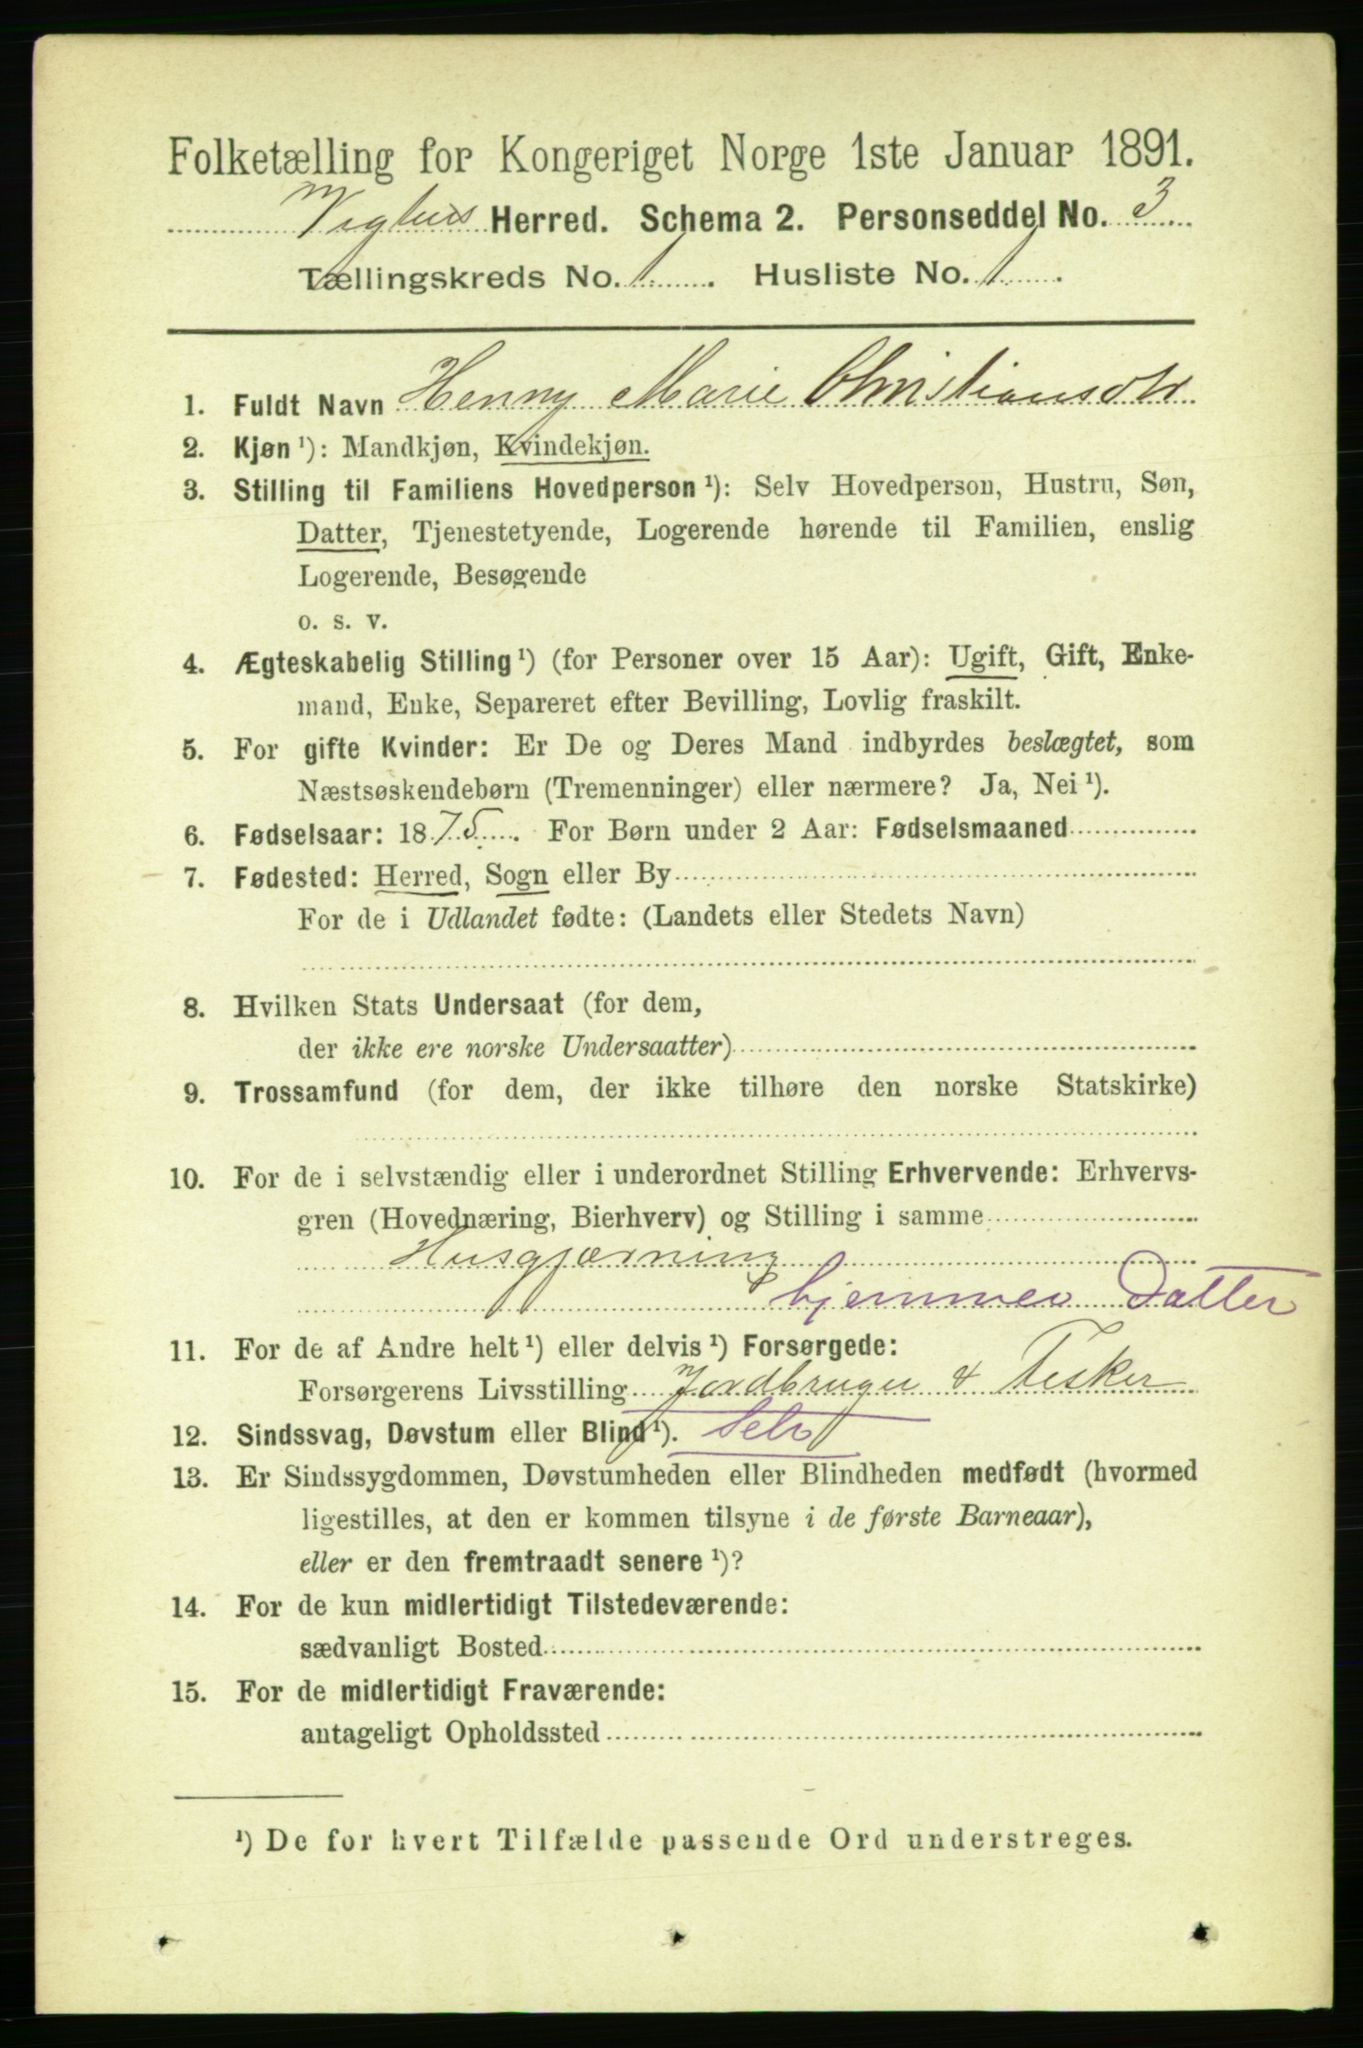 Folketælling for Kongeriget Norge 1ste Januar 1891.
Herred. Schema 2. Personseddel No. 3
Tællingskreds No. 1. Husliste No. 1.
1. Fuldt Navn Henny Marie Christiansdtr
2. Kjøn ¹): Mandkjøn, Kvindekjøn.
3. Stilling til Familiens Hovedperson ¹): Selv Hovedperson, Hustru, Søn,
Datter, Tjenestetyende, Logerende hørende til Familien, enslig
Logerende, Besøgende
o. s. v.
4. Ægteskabelig Stilling ¹) (for Personer over 15 Aar): Ugift, Gift, Enke-
mand, Enke, Separeret efter Bevilling, Lovlig fraskilt.
5. For gifte Kvinder: Er De og Deres Mand indbyrdes beslægtet, som
Næstsøskendebørn (Tremenninger) eller nærmere? Ja, Nei ¹).
6. Fødselsaar: 1875. For Børn under 2 Aar: Fødselsmaaned
7. Fødested: Herred, Sogn eller By
For de i Udlandet fødte: (Landets eller Stedets Navn)
8. Hvilken Stats Undersaat (for dem,
der ikke ere norske Undersaatter)
9. Trossamfund (for dem, der ikke tilhøre den norske Statskirke)
10. For de i selvstændig eller i underordnet Stilling Erhvervende: Erhvervs-
gren (Hovednæring, Bierhverv) og Stilling i samme
Husgjærning
hjemmev Datter
11. For de af Andre helt ¹) eller delvis ¹) Forsørgede:
Forsørgerens Livsstilling Jordbruger & Fisker
12. Sindssvag, Døvstum eller Blind ¹). Selv
13. Er Sindssygdommen, Døvstumheden eller Blindheden medfødt (hvormed
ligestilles, at den er kommen tilsyne i de første Barneaar),
eller er den fremtraadt senere ¹)?
14. For de kun midlertidigt Tilstedeværende:
sædvanligt Bosted
15. For de midlertidigt Fraværende:
antageligt Opholdssted
¹) De for hvert Tilfælde passende Ord understreges.